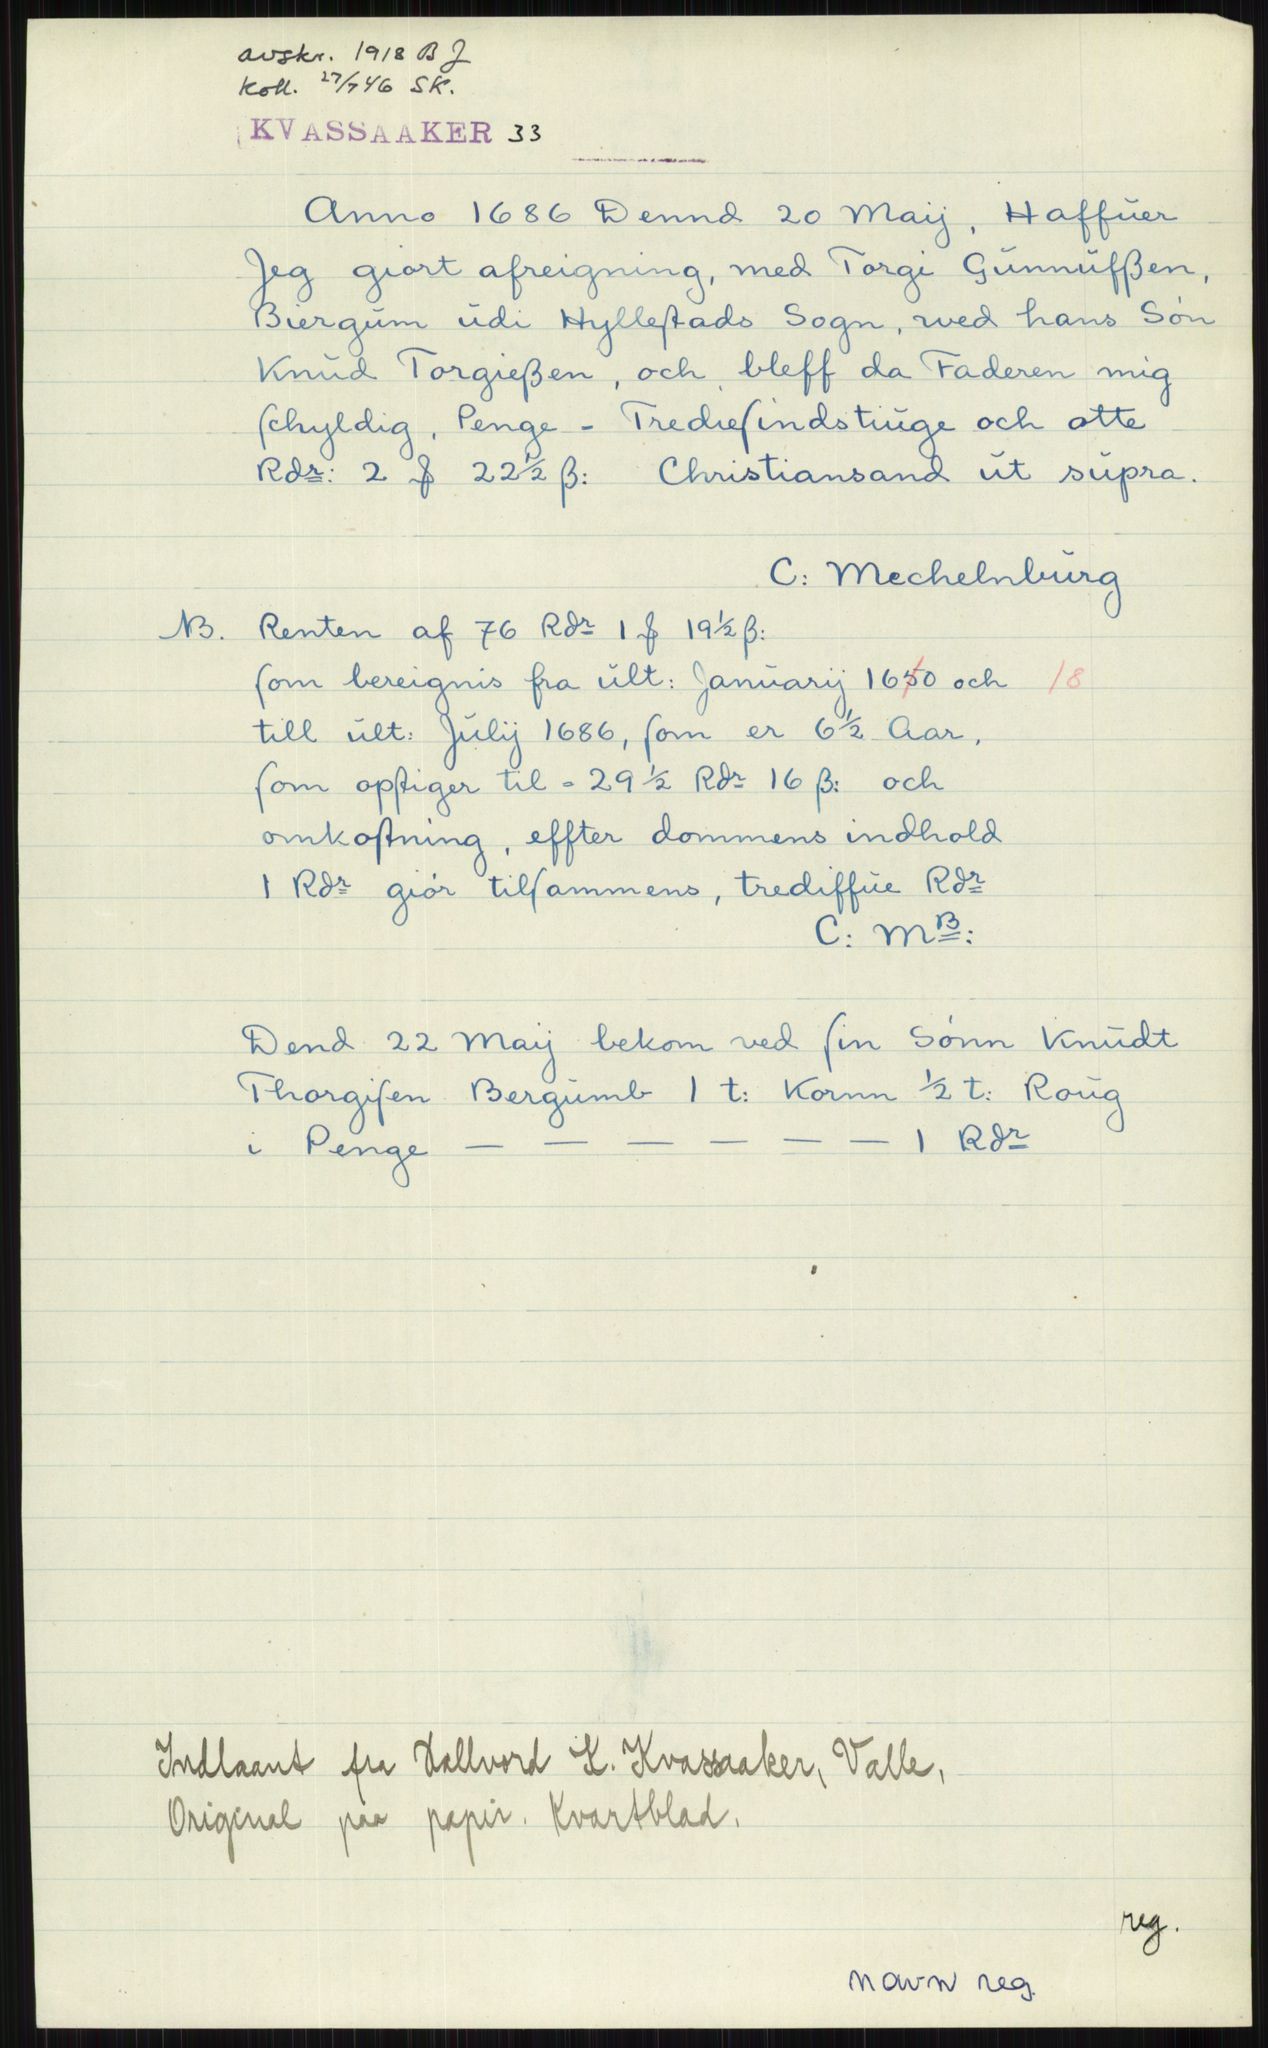 avskr. 1918 B J
Koll. 27/7 46 SK.
KVASSAAKER 33
Anno 1686 Dennd 20 Maij, Haffuer
Jeg giort afreigning, med Torgi Gunnufßen,
Biergum udi Hyllestads Sogn, wed hans Søn
Knud Torgießen, och bleff da Faderen mig
schyldig, Penge - Trediesindstiuge och otte
Rdr: 2 ₰ 22½ β: Christiansand ut supra.
C: Mechelnburg
NB. Renten af 76 Rdr 1 ₰ 19½ β:
som bereignis fra ult: Januarij 1650 och /8
till ult: Julij 1686, som er 6½ Aar,
som opstiger til - 29½ Rdr 16 β: och
omkostning, effter dommens indhold
1 Rdr giør tilsammens, trediffue Rdr
C: MB:
Dend 22 Maij bekom ved sin Sønn Knudt
Thorgisen Bergumb 1 t: Kornn ½ t: Roug
i Penge — — — — — — 1 Rdr
Indlaant fra Hallvord K. Kvassaaker, Valle,
Original paa papir. Kvartblad.
reg.
navn reg.